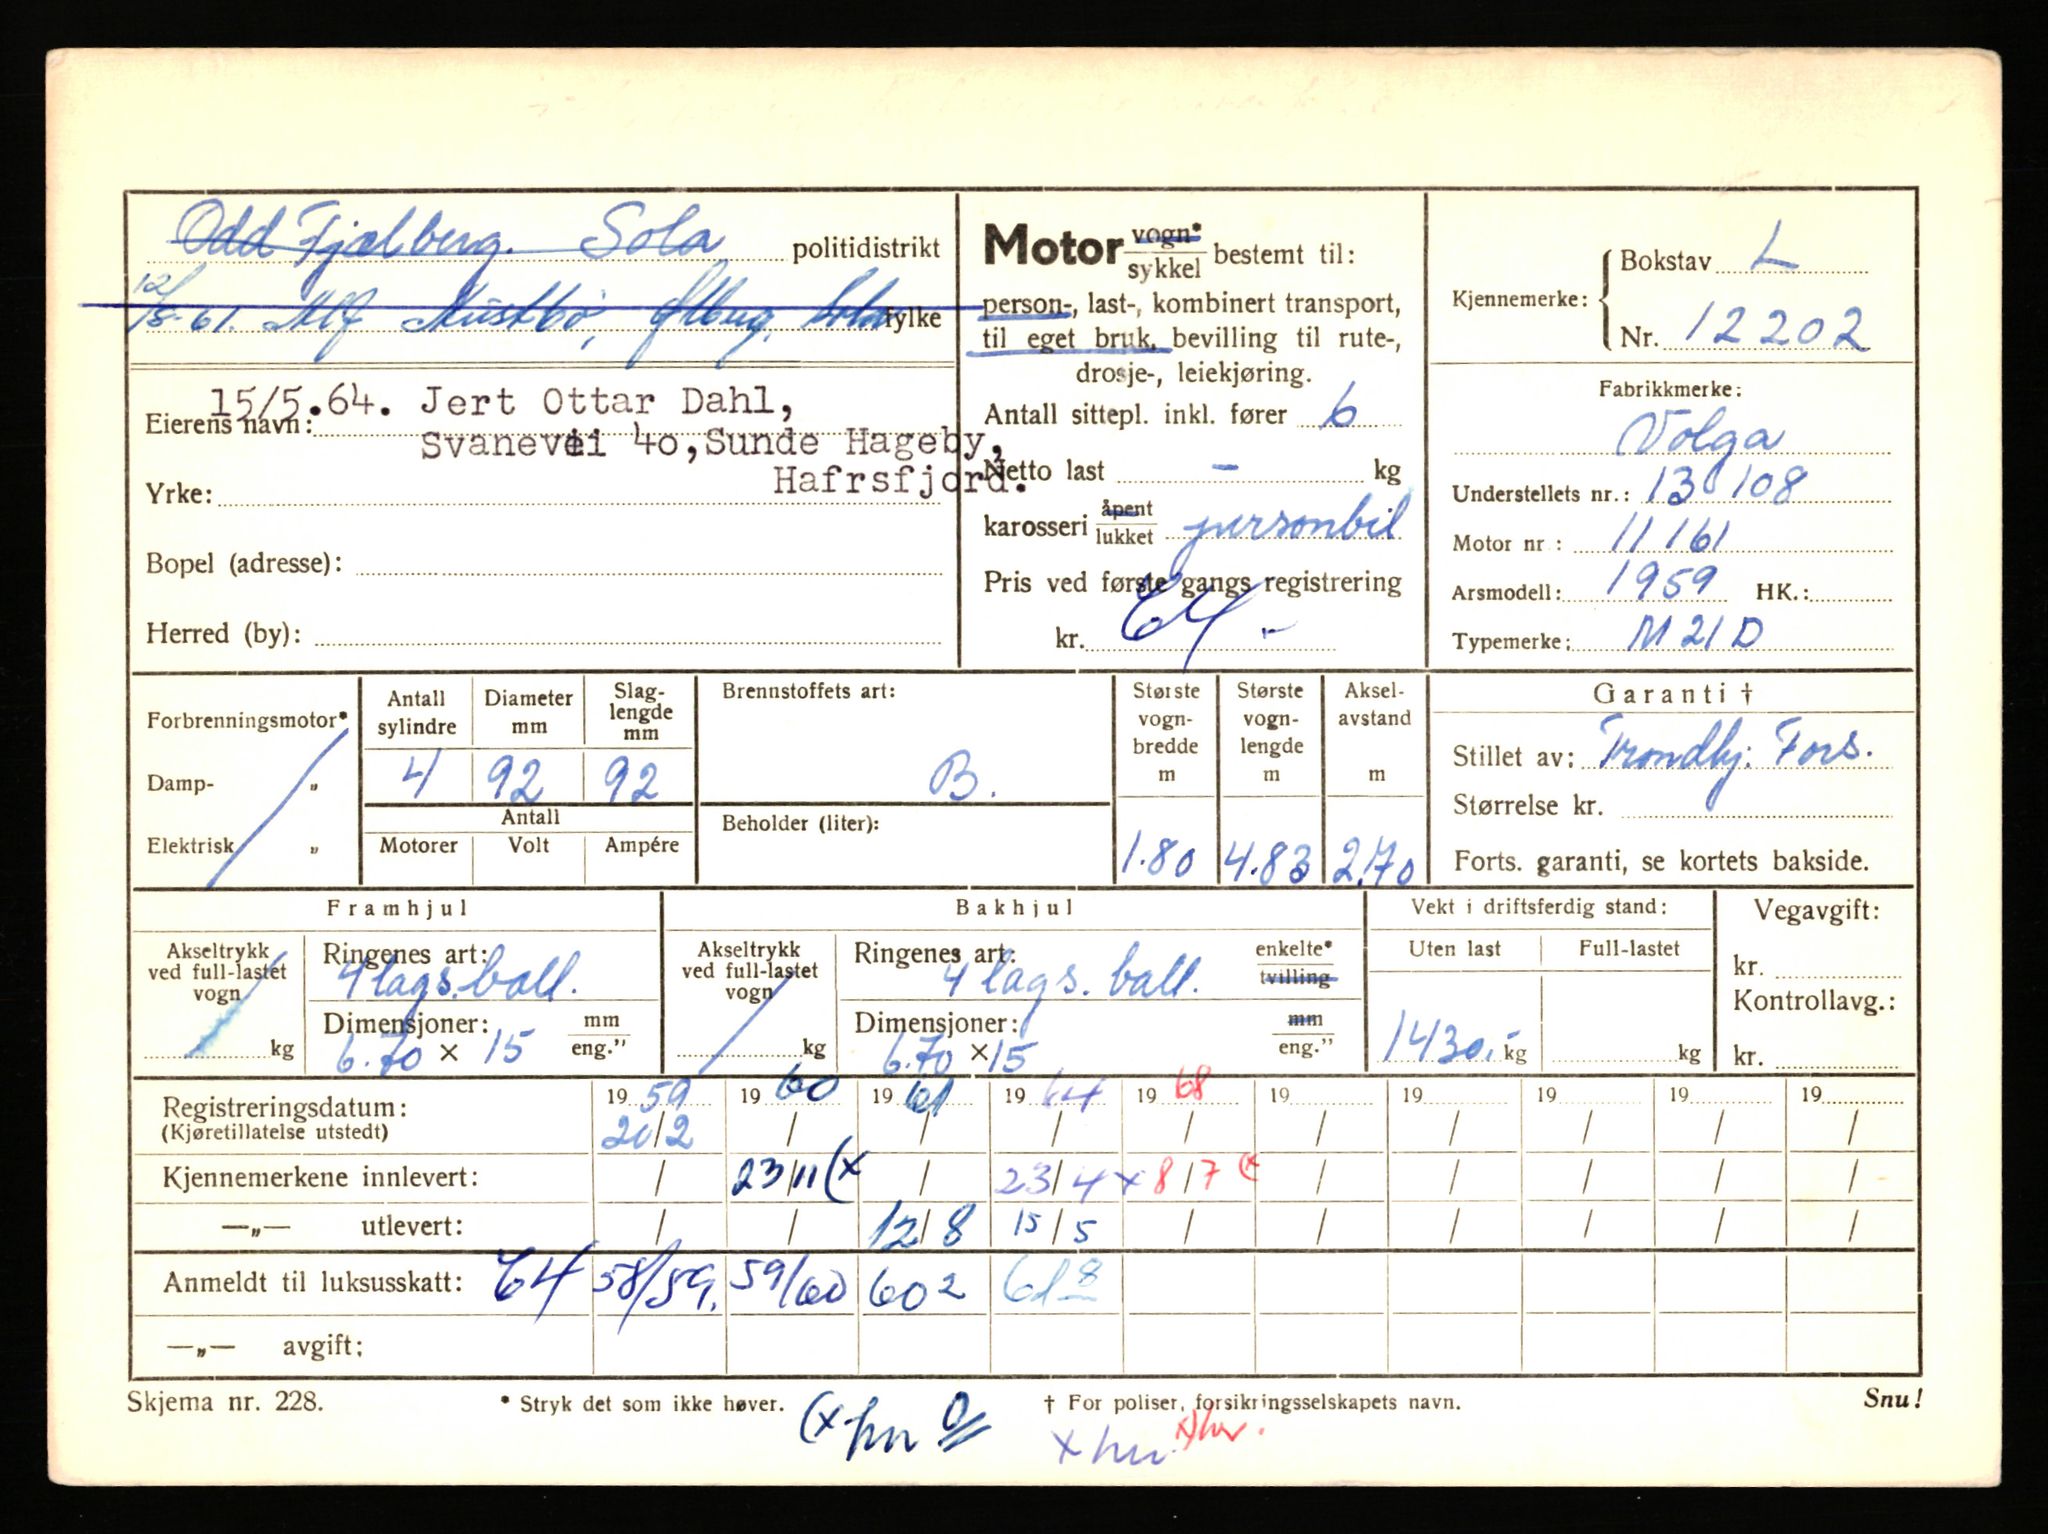 Odd Fjælberg. Sola politidistrikt
12/8-61. Alf fylke
15/5.64. Jert Ottar Dahl,
Eierens navn:
Svanevei 4o, Sunde Hageby,
Hafrsfjord.
Yrke:
Bopel (adresse):
Herred (by):
Motor vogn* sykkel bestemt til:
person-, last-, kombinert transport,
til eget bruk, bevilling til rute-,
drosje-, leiekjøring.
Antall sittepl. inkl. fører 6
Netto last - kg
karosseri åpent lukket personbil
Pris ved første gangs registrering
kr. 64 -
Kjennemerke: Bokstav L
Nr. 12202
Fabrikkmerke:
Volga
Understellets nr.: 130108
Motor nr: 11161
Arsmodell: 1959 HK.:
Typemerke: M21D
Forbrenningsmotor*
Damp- „
Elektrisk „
Antall sylindre Diameter mm Slag-lengde mm
4 92 92
Antall
Motorer Volt Ampére
Brennstoffets art:
B.
Beholder (liter):
Største vogn-bredde m Største vogn-lengde m Aksel-avstand m
1.80 4.83 2.70
Garanti †
Stillet av: Trondhj. Fors.
Størrelse kr.
Forts. garanti, se kortets bakside.
Framhjul
Akseltrykk ved full-lastet vogn
kg
Ringenes art:
4 lags. ball.
Dimensjoner: mm eng.”
6.70 × 15
Bakhjul
Akseltrykk ved full-lastet vogn
kg
Ringenes art: enkelte* tvilling
4 lags. ball.
Dimensjoner: mm eng.”
6.70 × 15
Vekt i driftsferdig stand:
Uten last Full-lastet
1430,- kg kg
Vegavgift:
kr.
Kontrollavg.:
kr.
1959 1960 1961 1964 1968 19 19 19 19 19
Registreringsdatum:
(Kjøretillatelse utstedt) 20/2 / / / / / / / / /
Kjennemerkene innlevert: / 23/11 (x / 23/4 x 8/7 (x / / / / /
—„— utlevert: / / 12/8 15/5 / / / / / /
Anmeldt til luksusskatt: 64 58/59. 59/60 60 2 61 8
—„— avgift:
Skjema nr. 228. * Stryk det som ikke høver. † For poliser, forsikringsselskapets navn. Snu!
(x hn
x hn x) hv.